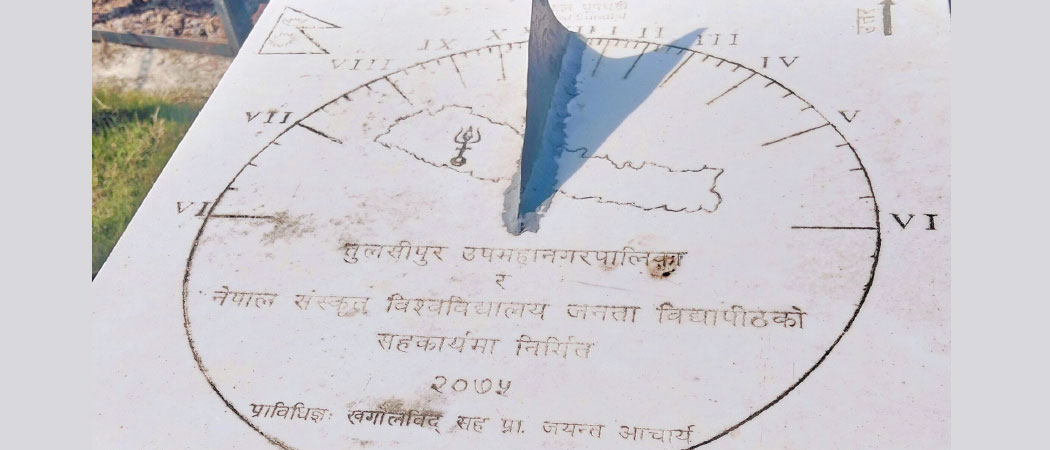 उत्तर
IX X I II III
VIII IV
VII V
VI VI
तुलसीपुर उपमहानगरपालिका
र
नेपाल संस्कृत विश्वविद्यालय जनता विद्यापीठको
सहकार्यमा निर्मित
२०७५
प्राविधिज्ञः खगोलविद् सह प्रा. जयन्त आचार्य